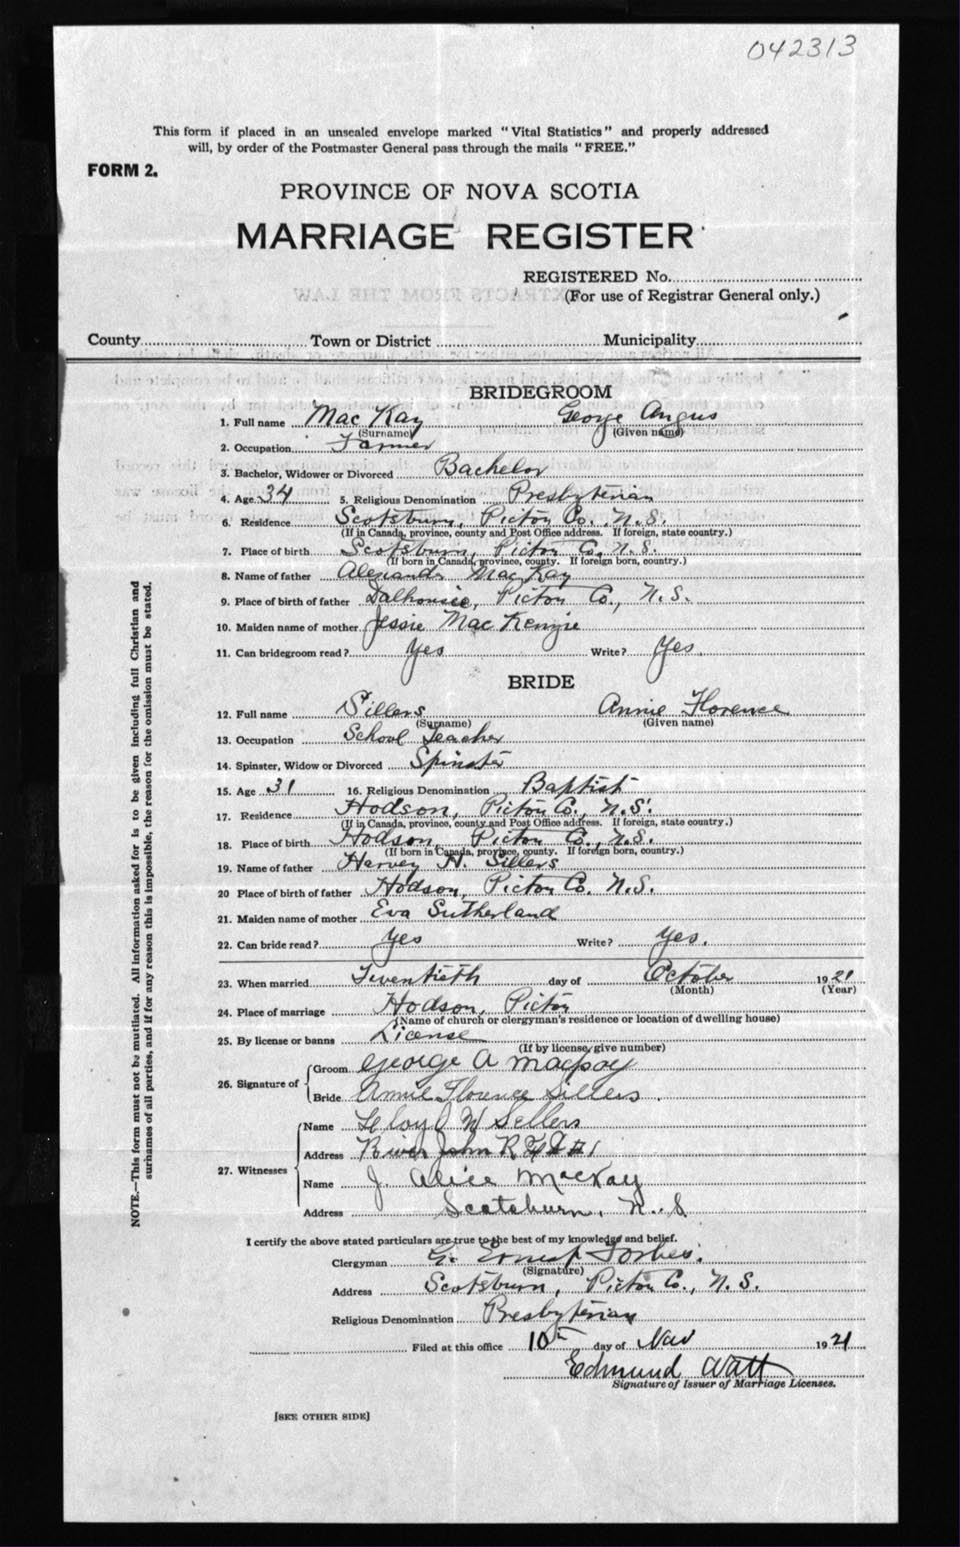 042313
This form if placed in an unsealed envelope marked "Vital Statistics" and properly addressed
will, by order of the Postmaster General pass through the mails "FREE."
FORM 2.
PROVINCE OF NOVA SCOTIA
MARRIAGE REGISTER
REGISTERED No.
(For use of Registrar General only.)
County Town or District Municipality
BRIDEGROOM
1. Full name Mac Kay George Angus
(Surname) (Given name)
2. Occupation Farmer
3. Bachelor, Widower or Divorced Bachelor
4. Age 34 5. Religious Denomination Presbyterian
6. Residence Scotsburn, Pictou Co., N.S.
(If in Canada, province, county and Post Office address. If foreign, state country.)
7. Place of birth Scotsburn, Pictou Co., N.S.
(If born in Canada, province, county. If foreign born, country.)
8. Name of father Alexander Mac Kay
9. Place of birth of father Dalhousie, Pictou Co., N.S.
10. Maiden name of mother Jessie Mac Kenzie
11. Can bridegroom read? Yes Write? Yes.
BRIDE
12. Full name Sillers Annie Florence
(Surname) (Given name)
13. Occupation School Teacher
14. Spinster, Widow or Divorced Spinster
15. Age 31 16. Religious Denomination Baptist
17. Residence Hodson, Pictou Co., N.S.
(If in Canada, province, county and Post Office address. If foreign, state country.)
18. Place of birth Hodson, Pictou Co., N.S.
(If born in Canada, province, county. If foreign born, country.)
19. Name of father Harvey H. Sillers
20 Place of birth of father Hodson, Pictou Co. N.S.
21. Maiden name of mother Eva Sutherland
22. Can bride read? Yes Write? Yes.
23. When married Twentieth day of October 1921
(Month) (Year)
24. Place of marriage Hodson, Pictou
(Name of church or clergyman's residence or location of dwelling house)
25. By license or banns License
(If by license, give number)
26. Signature of Groom George A MacKay
Bride Annie Florence Sillers.
27. Witnesses Name W Sellers
Address River John R #1
Name J. Alice MacKay
Address Scotsburn, N.S.
I certify the above stated particulars are true to the best of my knowledge and belief.
Clergyman G. Ernest Forbes.
(Signature)
Address Scotsburn, Pictou Co., N.S.
Religious Denomination Presbyterian
Filed at this office 10th day of Nov 1921
Edmund Watt
Signature of Issuer of Marriage Licenses.
[SEE OTHER SIDE]
NOTE.—This form must not be mutilated. All information asked for is to be given including full Christian and
surnames of all parties, and if for any reason this is impossible, the reason for the omission must be stated.